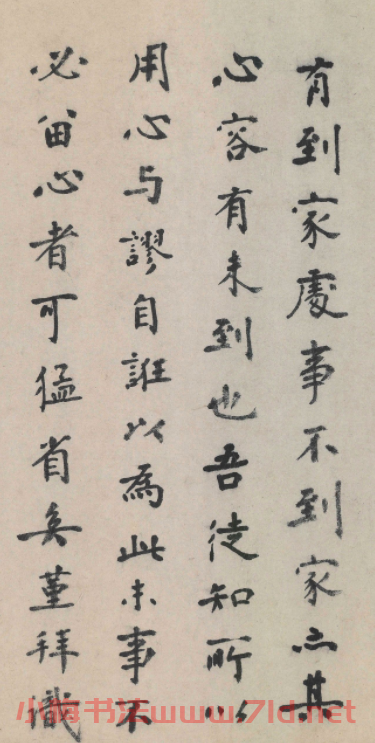 有到家處事不到家亦其
心容有未到也吾徒知所以
用心与謬自誑以為此末事不
必留心者可猛省矣董拜識
小梅书法www.7ld.net